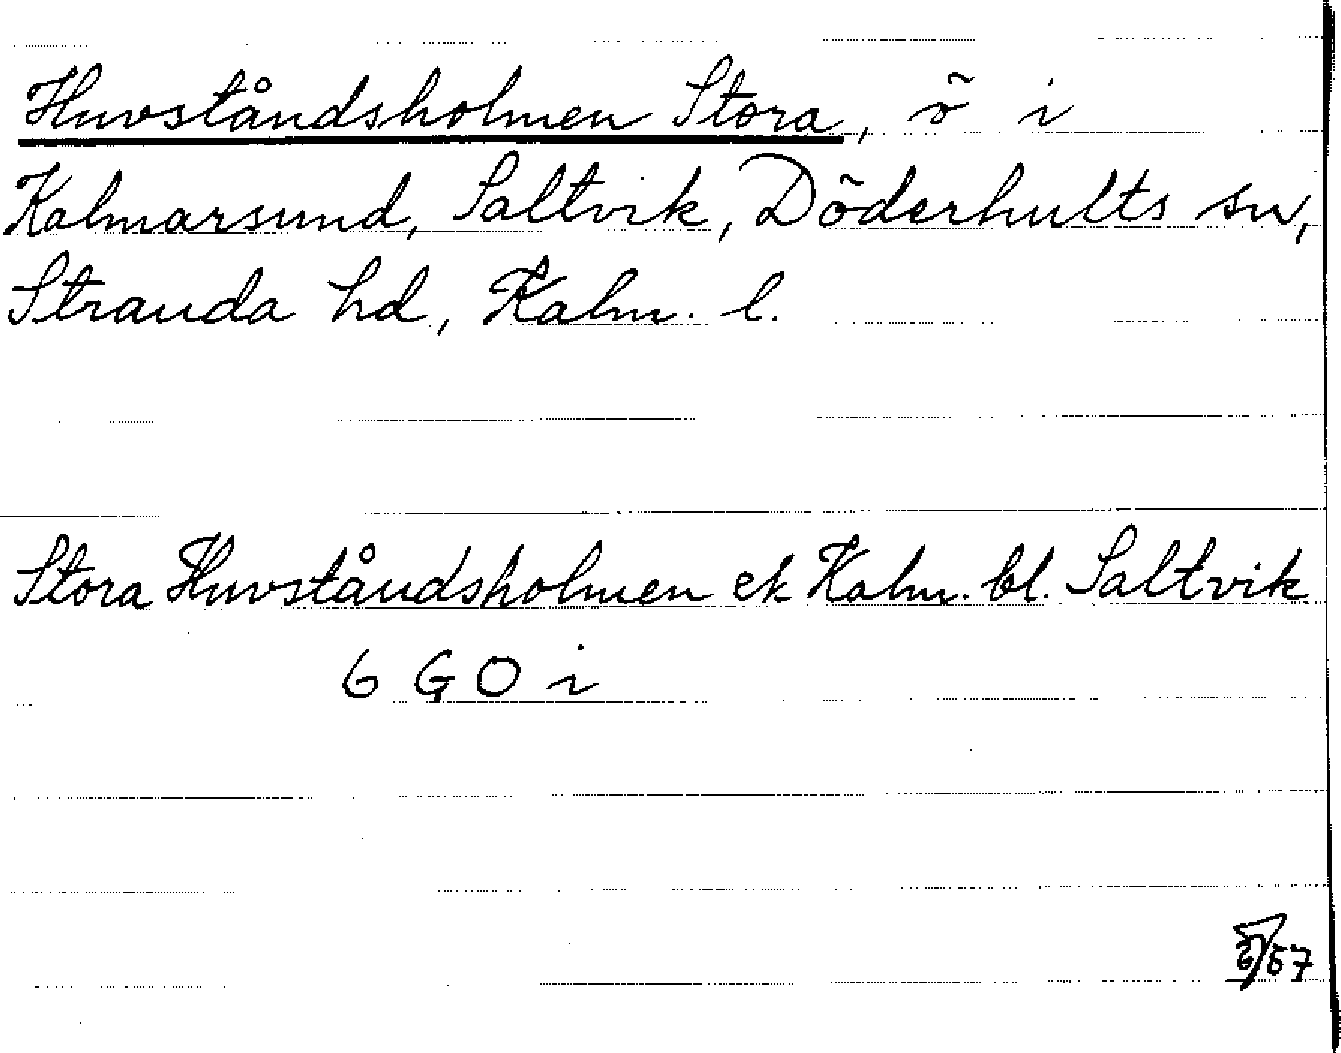 Huvståndsholmen Stora, ö i
Kalmarsund, Saltvik, Döderhults sn,
Stranda hd, Kalm. l.
Stora Huvståndsholmen ek Kalm. bl. Saltvik
6 G O i